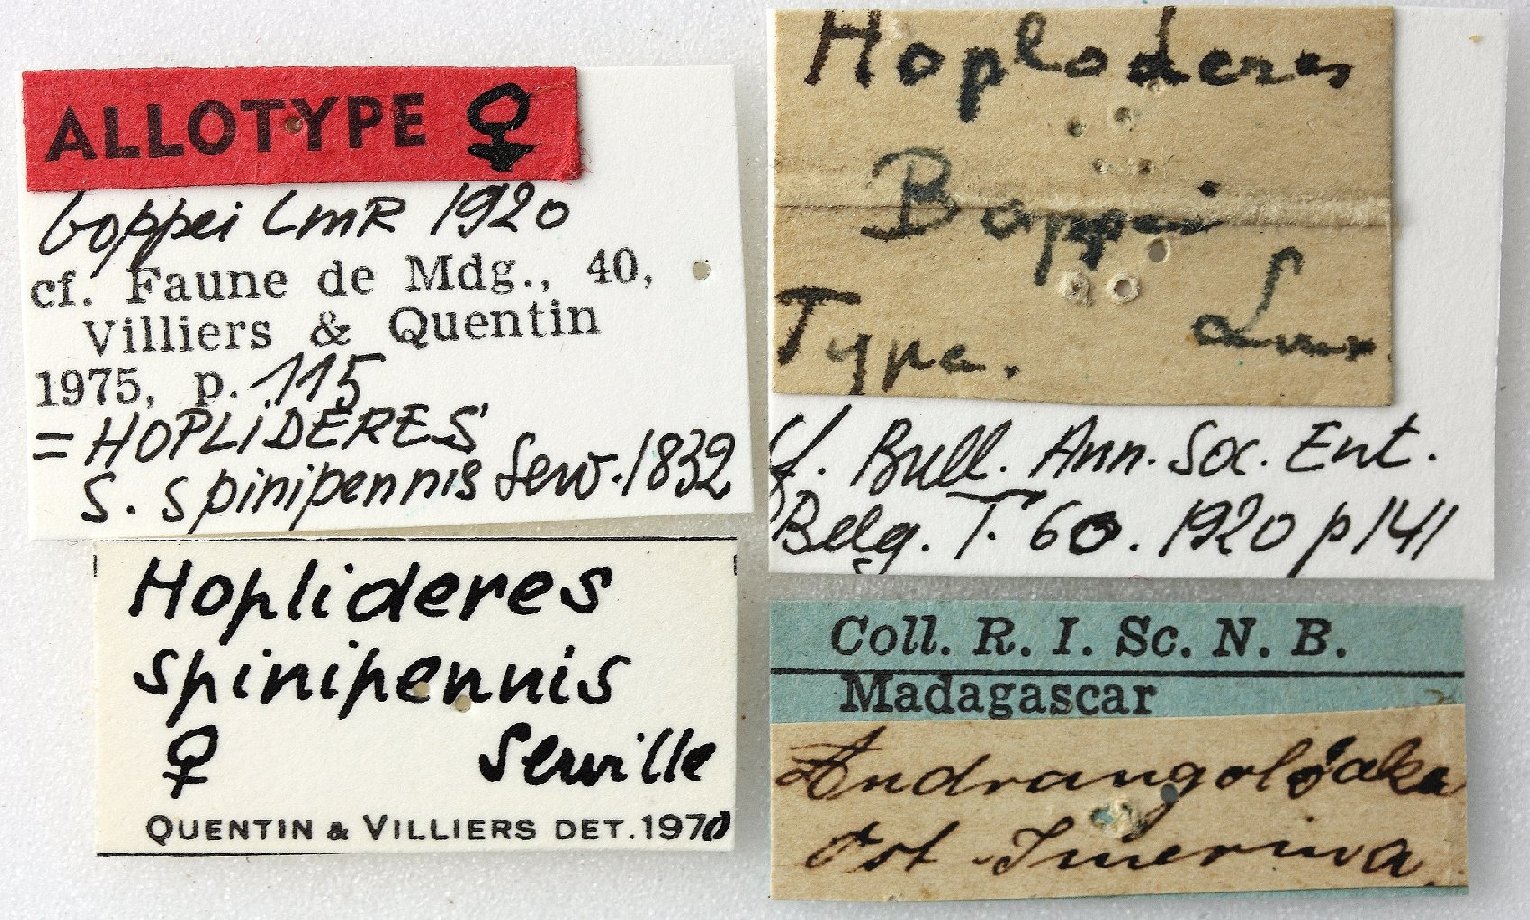 ALLOTYPE ♀
boppei LmR 1920
cf. Faune de Mdg., 40,
Villiers & Quentin
1975, p. 115
= HOPLIDERES
S. spinipennis Serv. 1832
Hoplideres
spinipennis
♀ Serville
QUENTIN & VILLIERS DET. 1970
Hoploderes
Boppei
Type. Lmr.
cf. Bull. Ann. Soc. Ent.
Belg. T. 60. 1920 p 141
Coll. R. I. Sc. N. B.
Madagascar
Andrangoloaka
Ost Imerina